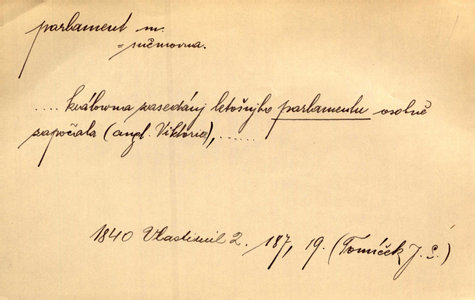 parlament m.
= sněmovna.
.... královna zasedánj letošnjho parlamentu osobně
započala (angl. Viktorie), ......
1840 Vlastimil 2. 187, 19. (Tomíček J. S.)